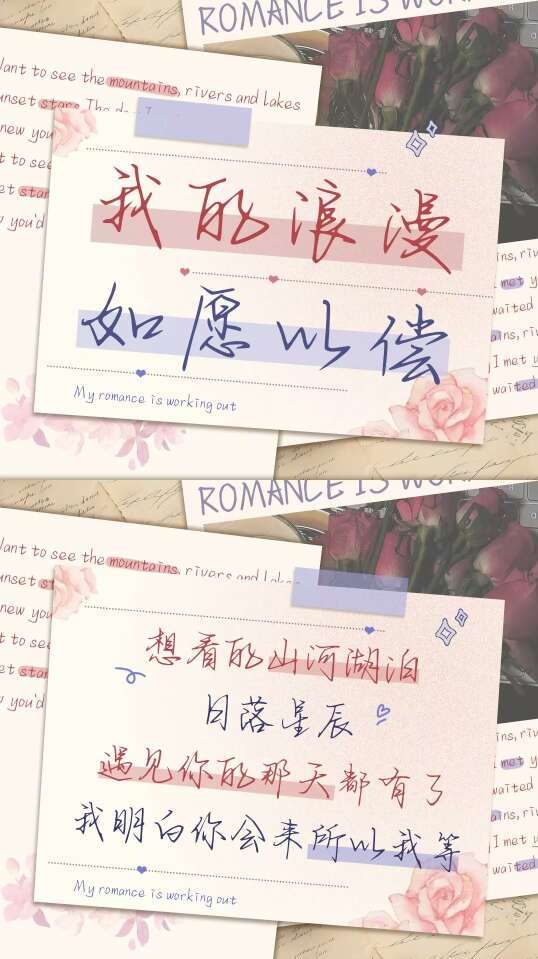 ROMANCE IS
Want to see the mountains, rivers and lakes
unset stars. The
new you
t to see
et star
you'd
我的浪漫
如愿以偿
My romance is working out
met
waited
I met y
waited
ROMANCE IS
Want to see the mountains, rivers and lakes
unset
new you
t to see
et star
you'd
想看的山河湖泊
日落星辰
遇见你的那天都有了
我明白你会来所以我等
My romance is working out
ins, riv
met y
waited
ains, riv
I met y
waited